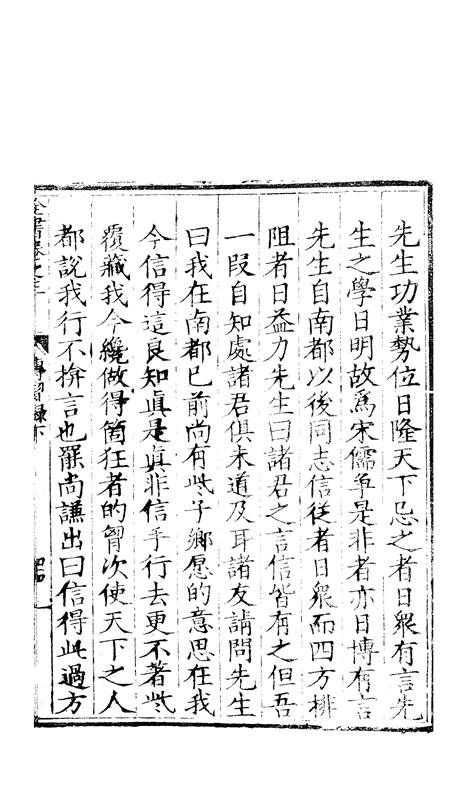 先生功業勢位日隆天下忌之者日衆有言先
生之學日明故爲宋儒爭是非者亦日博有言
先生自南都以後同志信從者日衆而四方排
阻者日益力先生曰諸君之言信皆有之但吾
一段自知處諸君俱未道及耳諸友請問先生
曰我在南都已前尚有些子鄉愿的意思在我
今信得這良知眞是眞非信手行去更不著些
覆藏我今纔做得箇狂者的胷次使天下之人
都說我行不揜言也罷尚謙出曰信得此過方
全書卷之三
傳習錄下